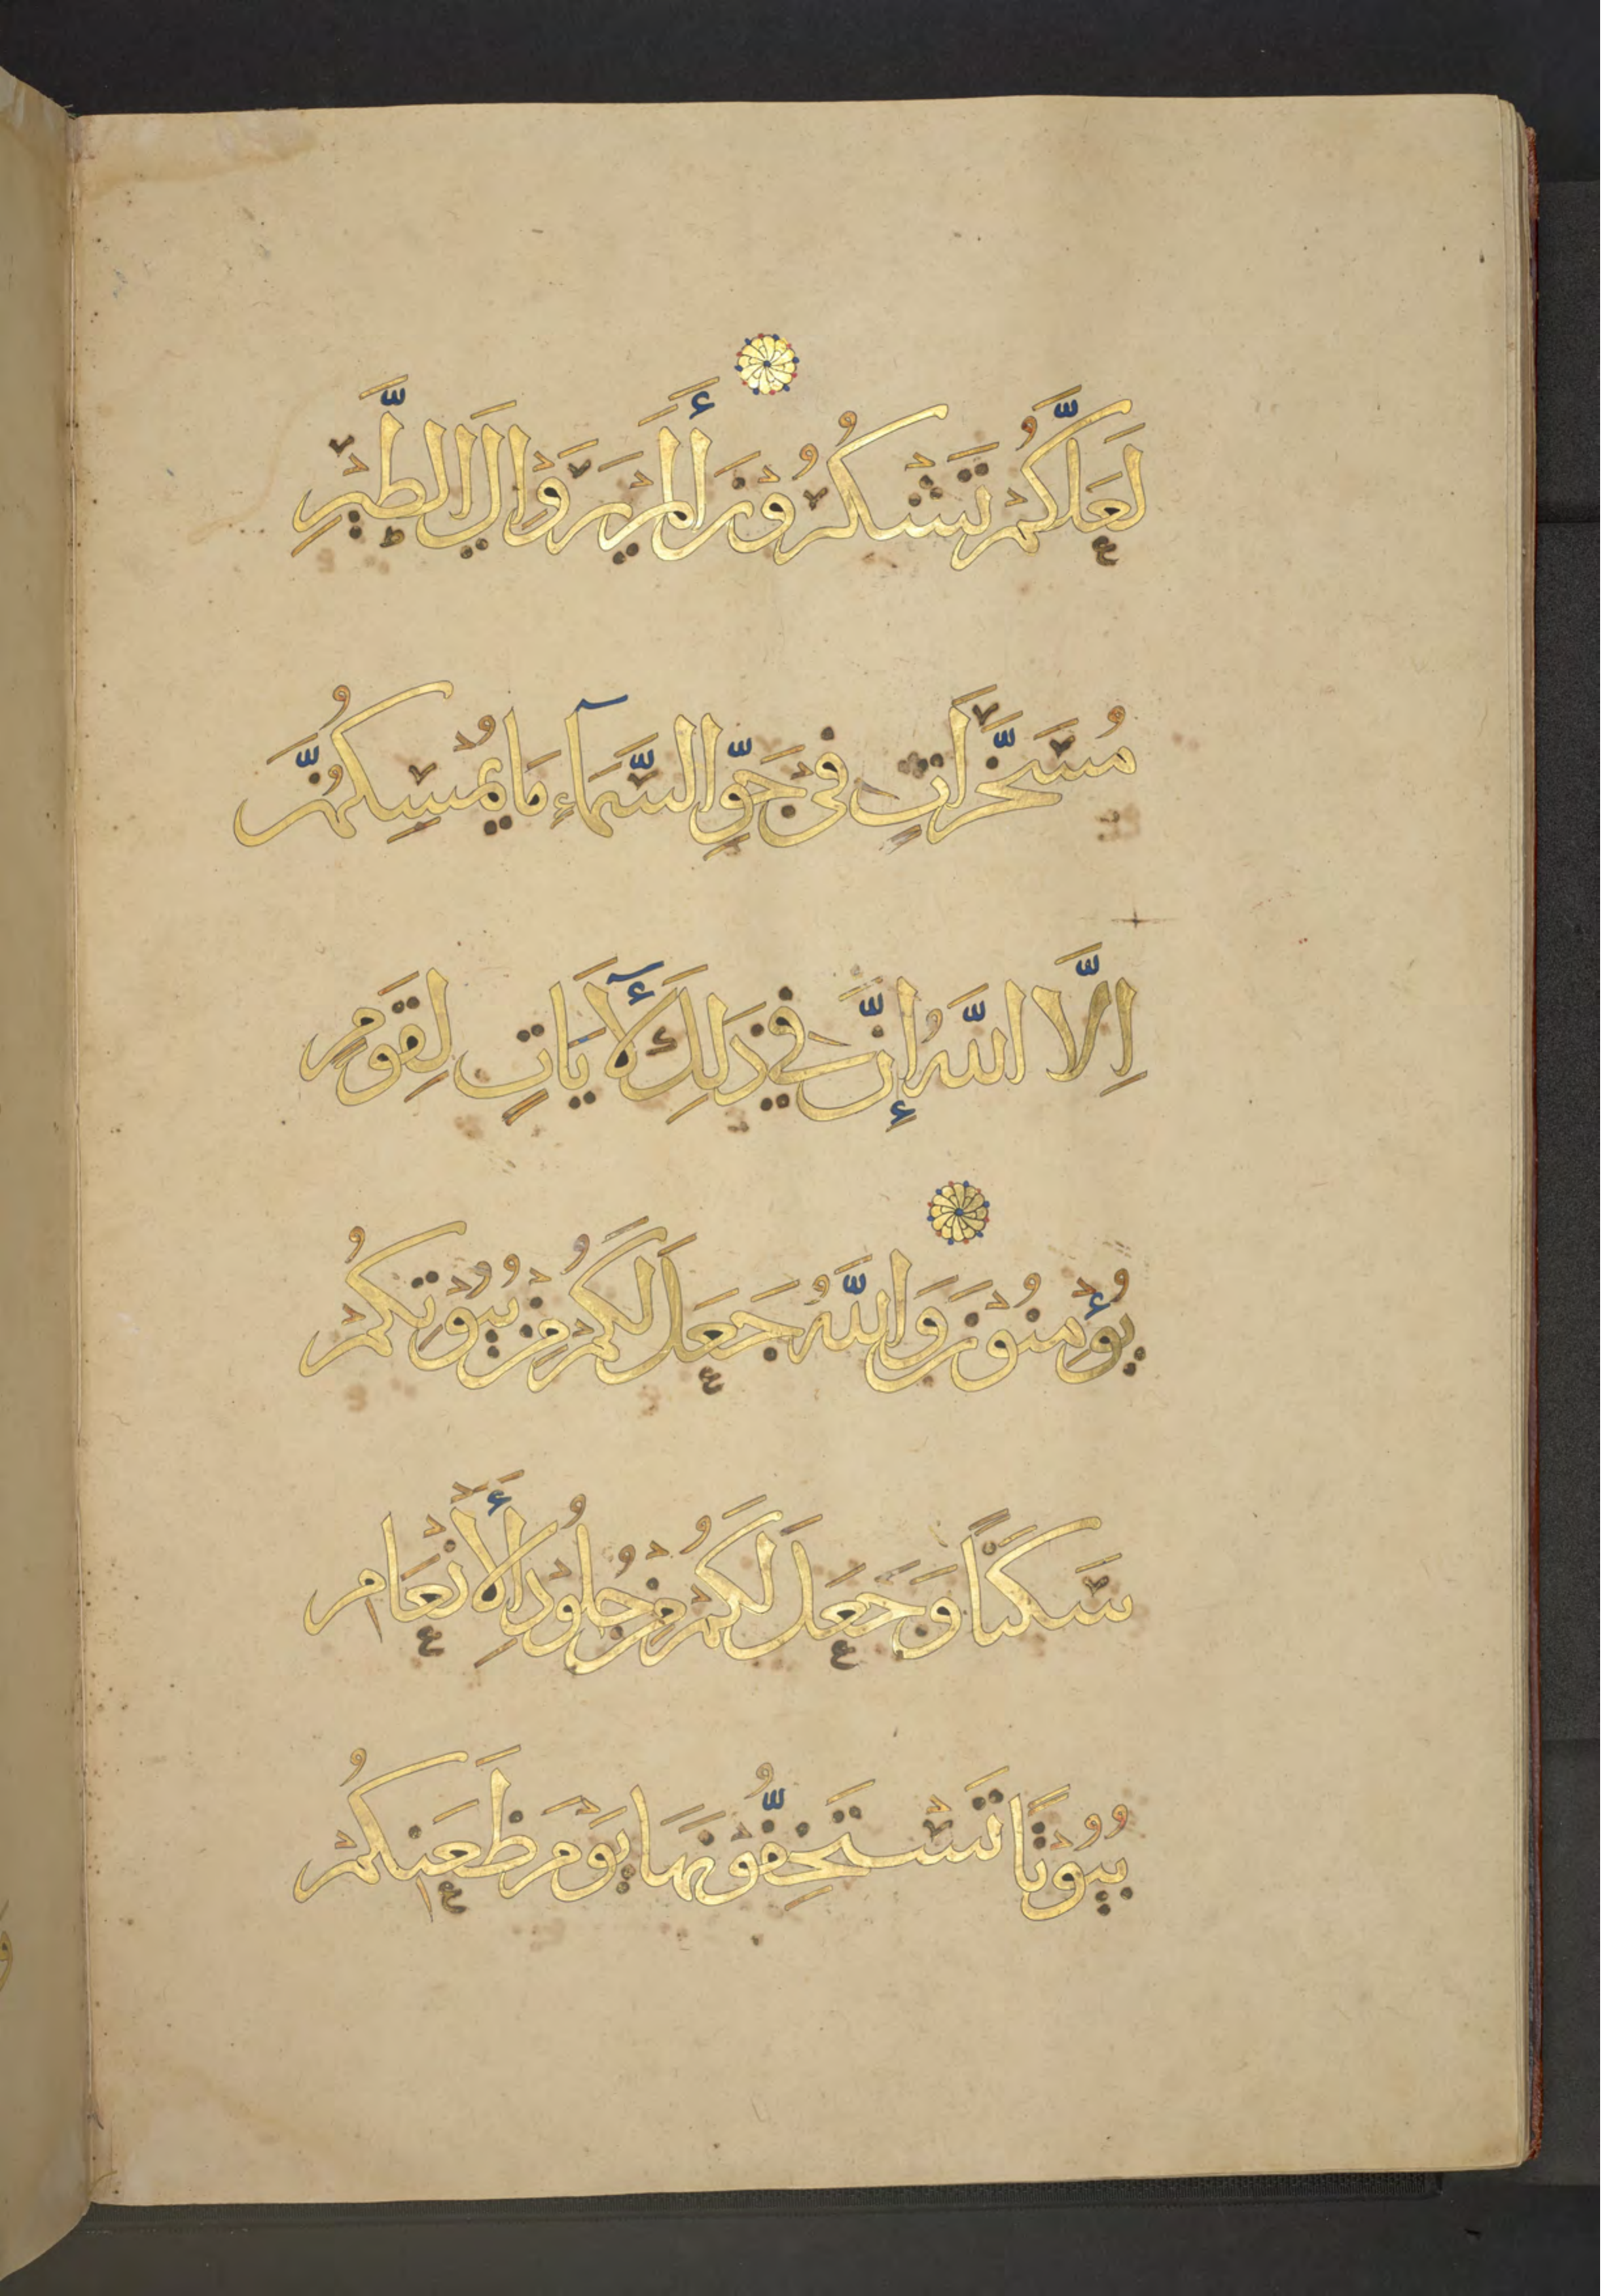 لَعَلَّكُمْ تَشْكُرُوْنَ أَلَمْ يَرَوْا إِلَى الطَّيْرِ
مُسَخَّرَاتٍ فِي جَوِّ السَّمَآءِ مَا يُمْسِكُهُنَّ
اِلَّا اللَّهُ إِنَّ فِي ذَلِكَ لَأَيَاتٍ لِقَوْمٍ
يُؤْمِنُوْنَ وَاللَّهُ جَعَلَ لَكُمْ مِنْ بُيُوْتِكُمْ
سَكَنًا وَجَعَلَ لَكُمْ مِنْ جُلُوْدِ الْأَنْعَامِ
بُيُوْتًا تَسْتَخِفُّوْنَهَا يَوْمَ ظَعْنِكُمْ